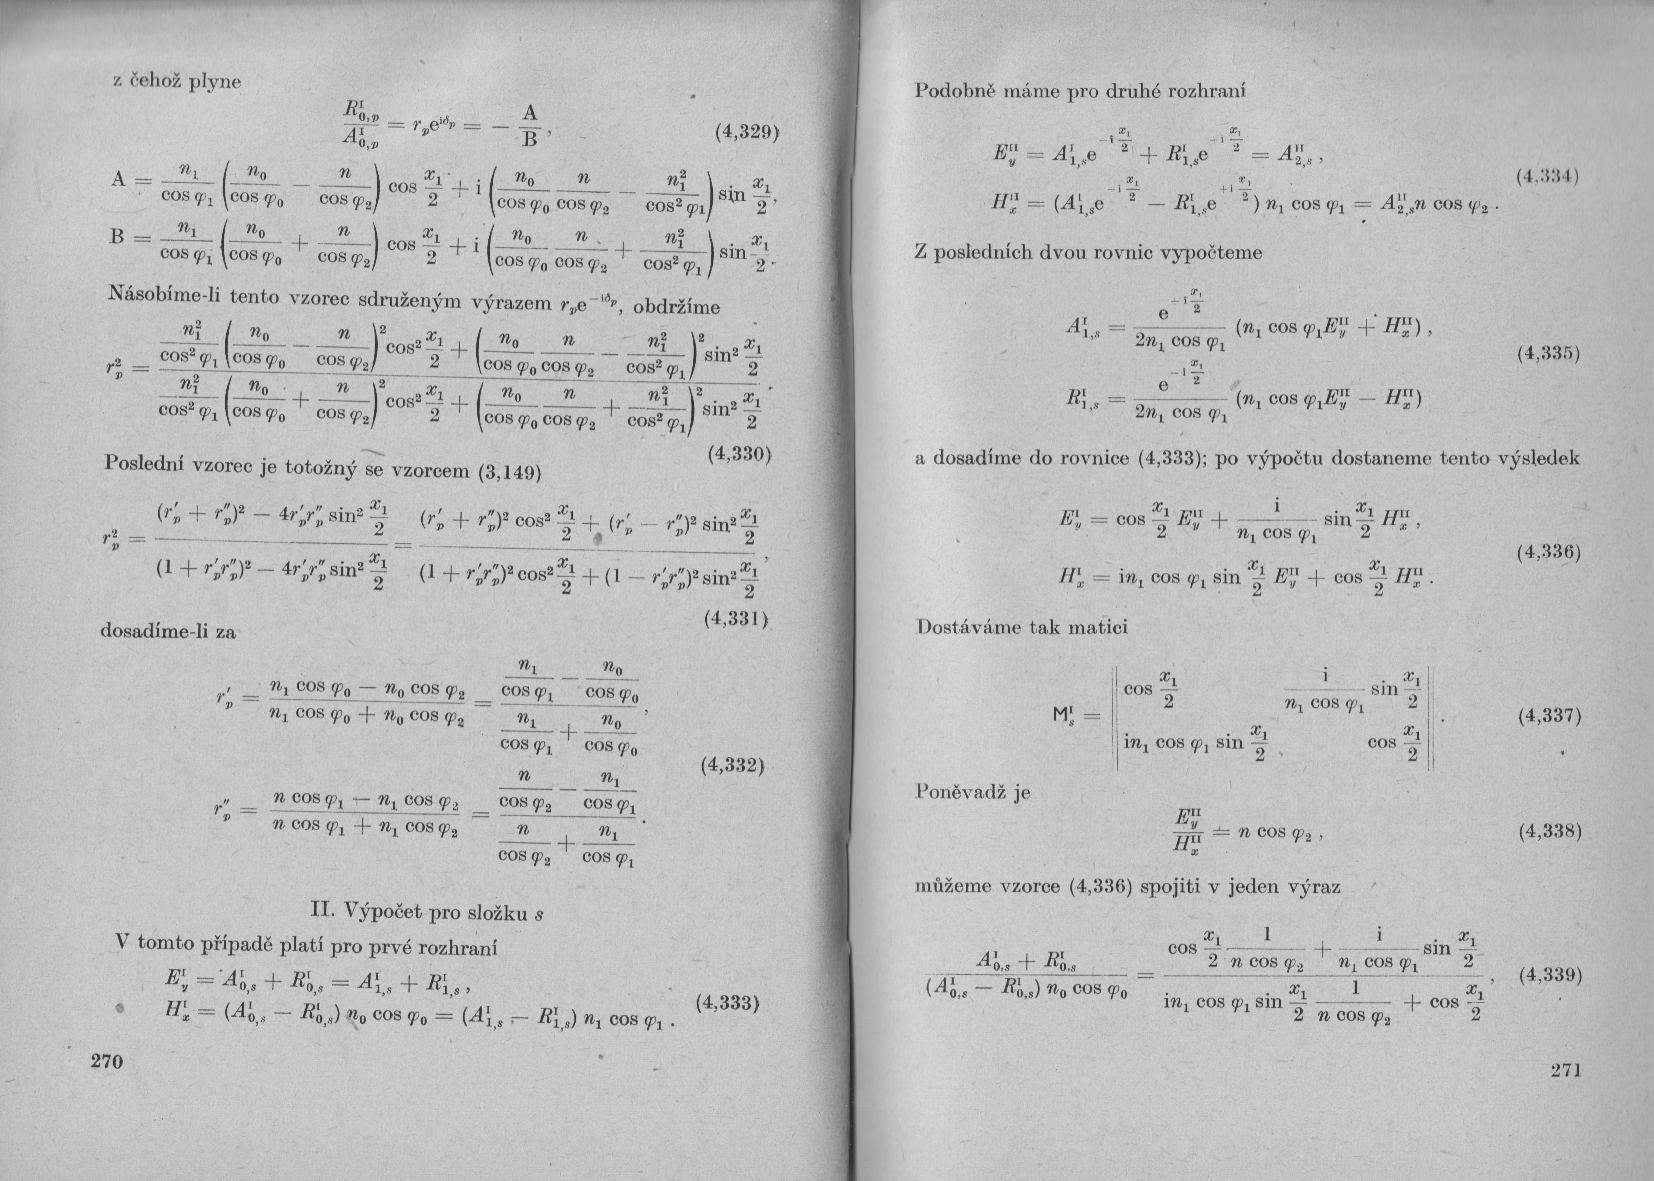 z čehož plyne
R^I_{0,p} / A^I_{0,p} = r_p e^{iδ_p} = − A / B , (4,329)
A = n_1 / cos φ_1 ( n_0 / cos φ_0 − n / cos φ_2 ) cos x_1/2 + i ( n_0 / cos φ_0 n / cos φ_2 − n_1^2 / cos² φ_1 ) sin x_1/2 ,
B = n_1 / cos φ_1 ( n_0 / cos φ_0 + n / cos φ_2 ) cos x_1/2 + i ( n_0 / cos φ_0 n / cos φ_2 + n_1^2 / cos² φ_1 ) sin x_1/2 .
Násobíme-li tento vzorec sdruženým výrazem r_p e^{−iδ_p}, obdržíme
r_p^2 = [ n_1^2 / cos² φ_1 ( n_0 / cos φ_0 − n / cos φ_2 )² cos² x_1/2 + ( n_0 / cos φ_0 n / cos φ_2 − n_1^2 / cos² φ_1 )² sin² x_1/2 ] / [ n_1^2 / cos² φ_1 ( n_0 / cos φ_0 + n / cos φ_2 )² cos² x_1/2 + ( n_0 / cos φ_0 n / cos φ_2 + n_1^2 / cos² φ_1 )² sin² x_1/2 ] .
(4,330)
Poslední vzorec je totožný se vzorcem (3,149)
r_p^2 = [ (r'_p + r''_p)² − 4r'_p r''_p sin² x_1/2 ] / [ (1 + r'_p r''_p)² − 4r'_p r''_p sin² x_1/2 ] = [ (r'_p + r''_p)² cos² x_1/2 + (r'_p − r''_p)² sin² x_1/2 ] / [ (1 + r'_p r''_p)² cos² x_1/2 + (1 − r'_p r''_p)² sin² x_1/2 ] ,
(4,331)
dosadíme-li za
r'_p = [ n_1 cos φ_0 − n_0 cos φ_2 ] / [ n_1 cos φ_0 + n_0 cos φ_2 ] = [ n_1 / cos φ_1 − n_0 / cos φ_0 ] / [ n_1 / cos φ_1 + n_0 / cos φ_0 ] ,
(4,332)
r''_p = [ n cos φ_1 − n_1 cos φ_2 ] / [ n cos φ_1 + n_1 cos φ_2 ] = [ n / cos φ_2 − n_1 / cos φ_1 ] / [ n / cos φ_2 + n_1 / cos φ_1 ] .
II. Výpočet pro složku s
V tomto případě platí pro prvé rozhraní
E^I_y = A^I_{0,s} + R^I_{0,s} = A^I_{1,s} + R^I_{1,s} ,
(4,333)
H^I_x = (A^I_{0,s} − R^I_{0,s}) n_0 cos φ_0 = (A^I_{1,s} − R^I_{1,s}) n_1 cos φ_1 .
270
Podobně máme pro druhé rozhraní
E^{II}_y = A^I_{1,s} e^{−i x_1/2} + R^I_{1,s} e^{+i x_1/2} = A^{II}_{2,s} ,
(4,334)
H^{II}_x = (A^I_{1,s} e^{−i x_1/2} − R^I_{1,s} e^{+i x_1/2}) n_1 cos φ_1 = A^{II}_{2,s} n cos φ_2 .
Z posledních dvou rovnic vypočteme
A^I_{1,s} = e^{+i x_1/2} / 2n_1 cos φ_1 (n_1 cos φ_1 E^{II}_y + H^{II}_x) ,
(4,335)
R^I_{1,s} = e^{−i x_1/2} / 2n_1 cos φ_1 (n_1 cos φ_1 E^{II}_y − H^{II}_x)
a dosadíme do rovnice (4,333); po výpočtu dostaneme tento výsledek
E^I_y = cos x_1/2 E^{II}_y + i / n_1 cos φ_1 sin x_1/2 H^{II}_x ,
(4,336)
H^I_x = in_1 cos φ_1 sin x_1/2 E^{II}_y + cos x_1/2 H^{II}_x .
Dostáváme tak matici
M^I_s = || cos x_1/2 i / n_1 cos φ_1 sin x_1/2
in_1 cos φ_1 sin x_1/2 cos x_1/2 || . (4,337)
Poněvadž je
E^{II}_y / H^{II}_x = n cos φ_2 , (4,338)
můžeme vzorce (4,336) spojiti v jeden výraz
[ A^I_{0,s} + R^I_{0,s} ] / [ (A^I_{0,s} − R^I_{0,s}) n_0 cos φ_0 ] = [ cos x_1/2 1 / n cos φ_2 + i / n_1 cos φ_1 sin x_1/2 ] / [ in_1 cos φ_1 sin x_1/2 1 / n cos φ_2 + cos x_1/2 ] , (4,339)
271